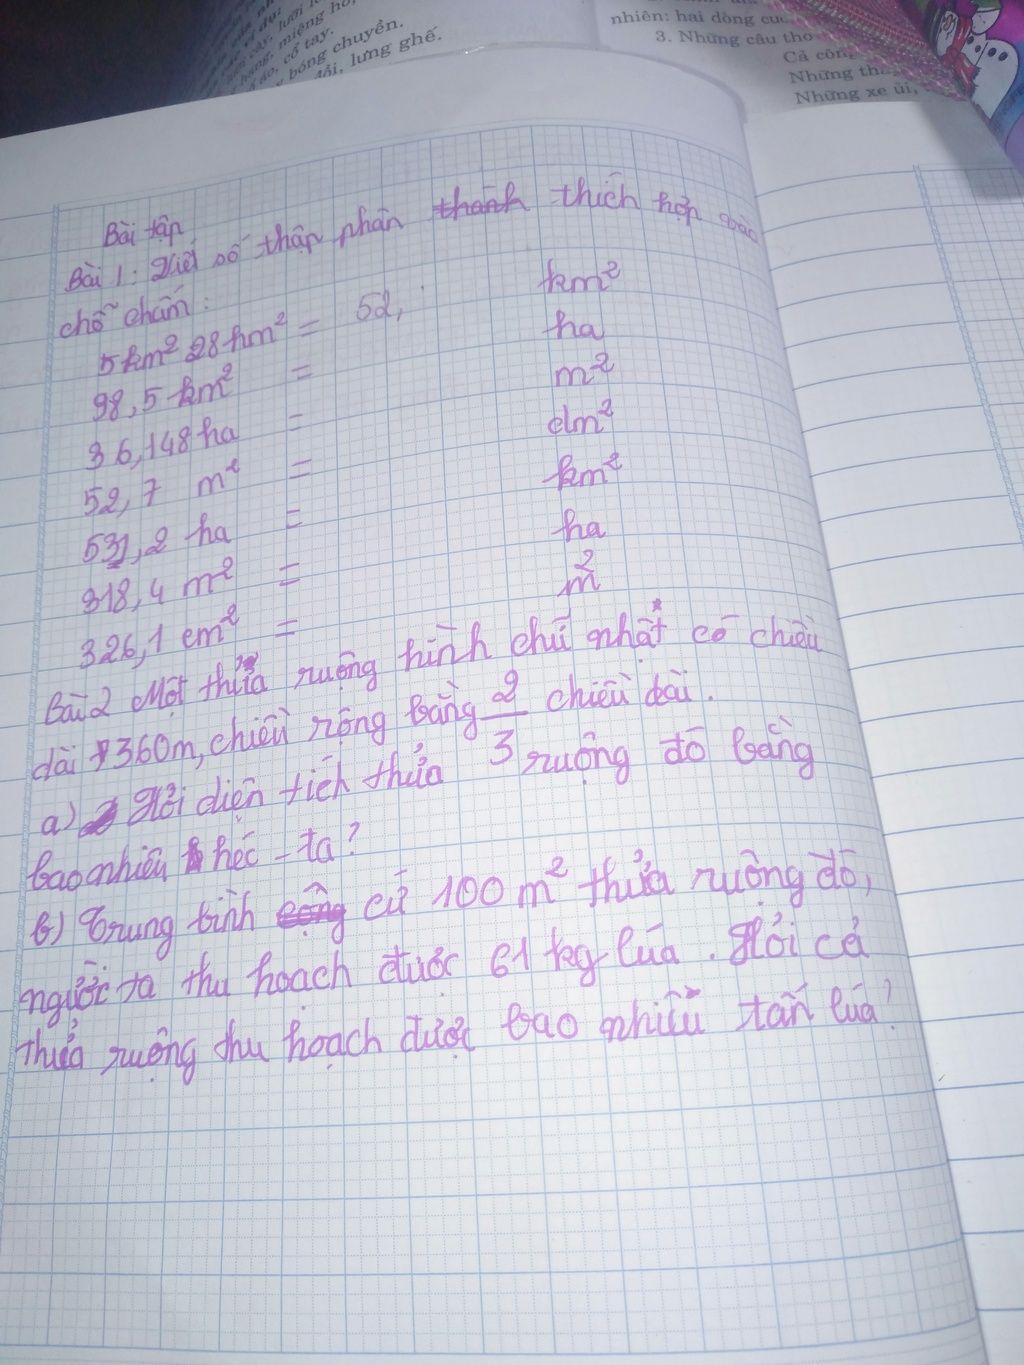 lưng ghế.
bóng chuyền.
cổ tay.
nhiên: hai dòng
3. Những câu tho
Cả
Những
Những xe ủi,
Bài tập
Bài 1: Viết số thập phân thành thích hợp vào
chỗ chấm:
5km² 28hm² = 52, km²
98,5 km² = ha
36,148 ha = m²
52,7 m² = dm²
531,2 ha = km²
318,4 m² = ha
326,1 cm² = m²
Bài 2 Một thửa ruộng hình chữ nhật có chiều
dài 360m, chiều rộng bằng 2/3 chiều dài.
a) Hỏi diện tích thửa ruộng đó bằng
bao nhiêu héc-ta?
b) Trung bình cứ 100 m² thửa ruộng đó,
người ta thu hoạch được 61 kg lúa. Hỏi cả
thửa ruộng thu hoạch được bao nhiêu tấn lúa?